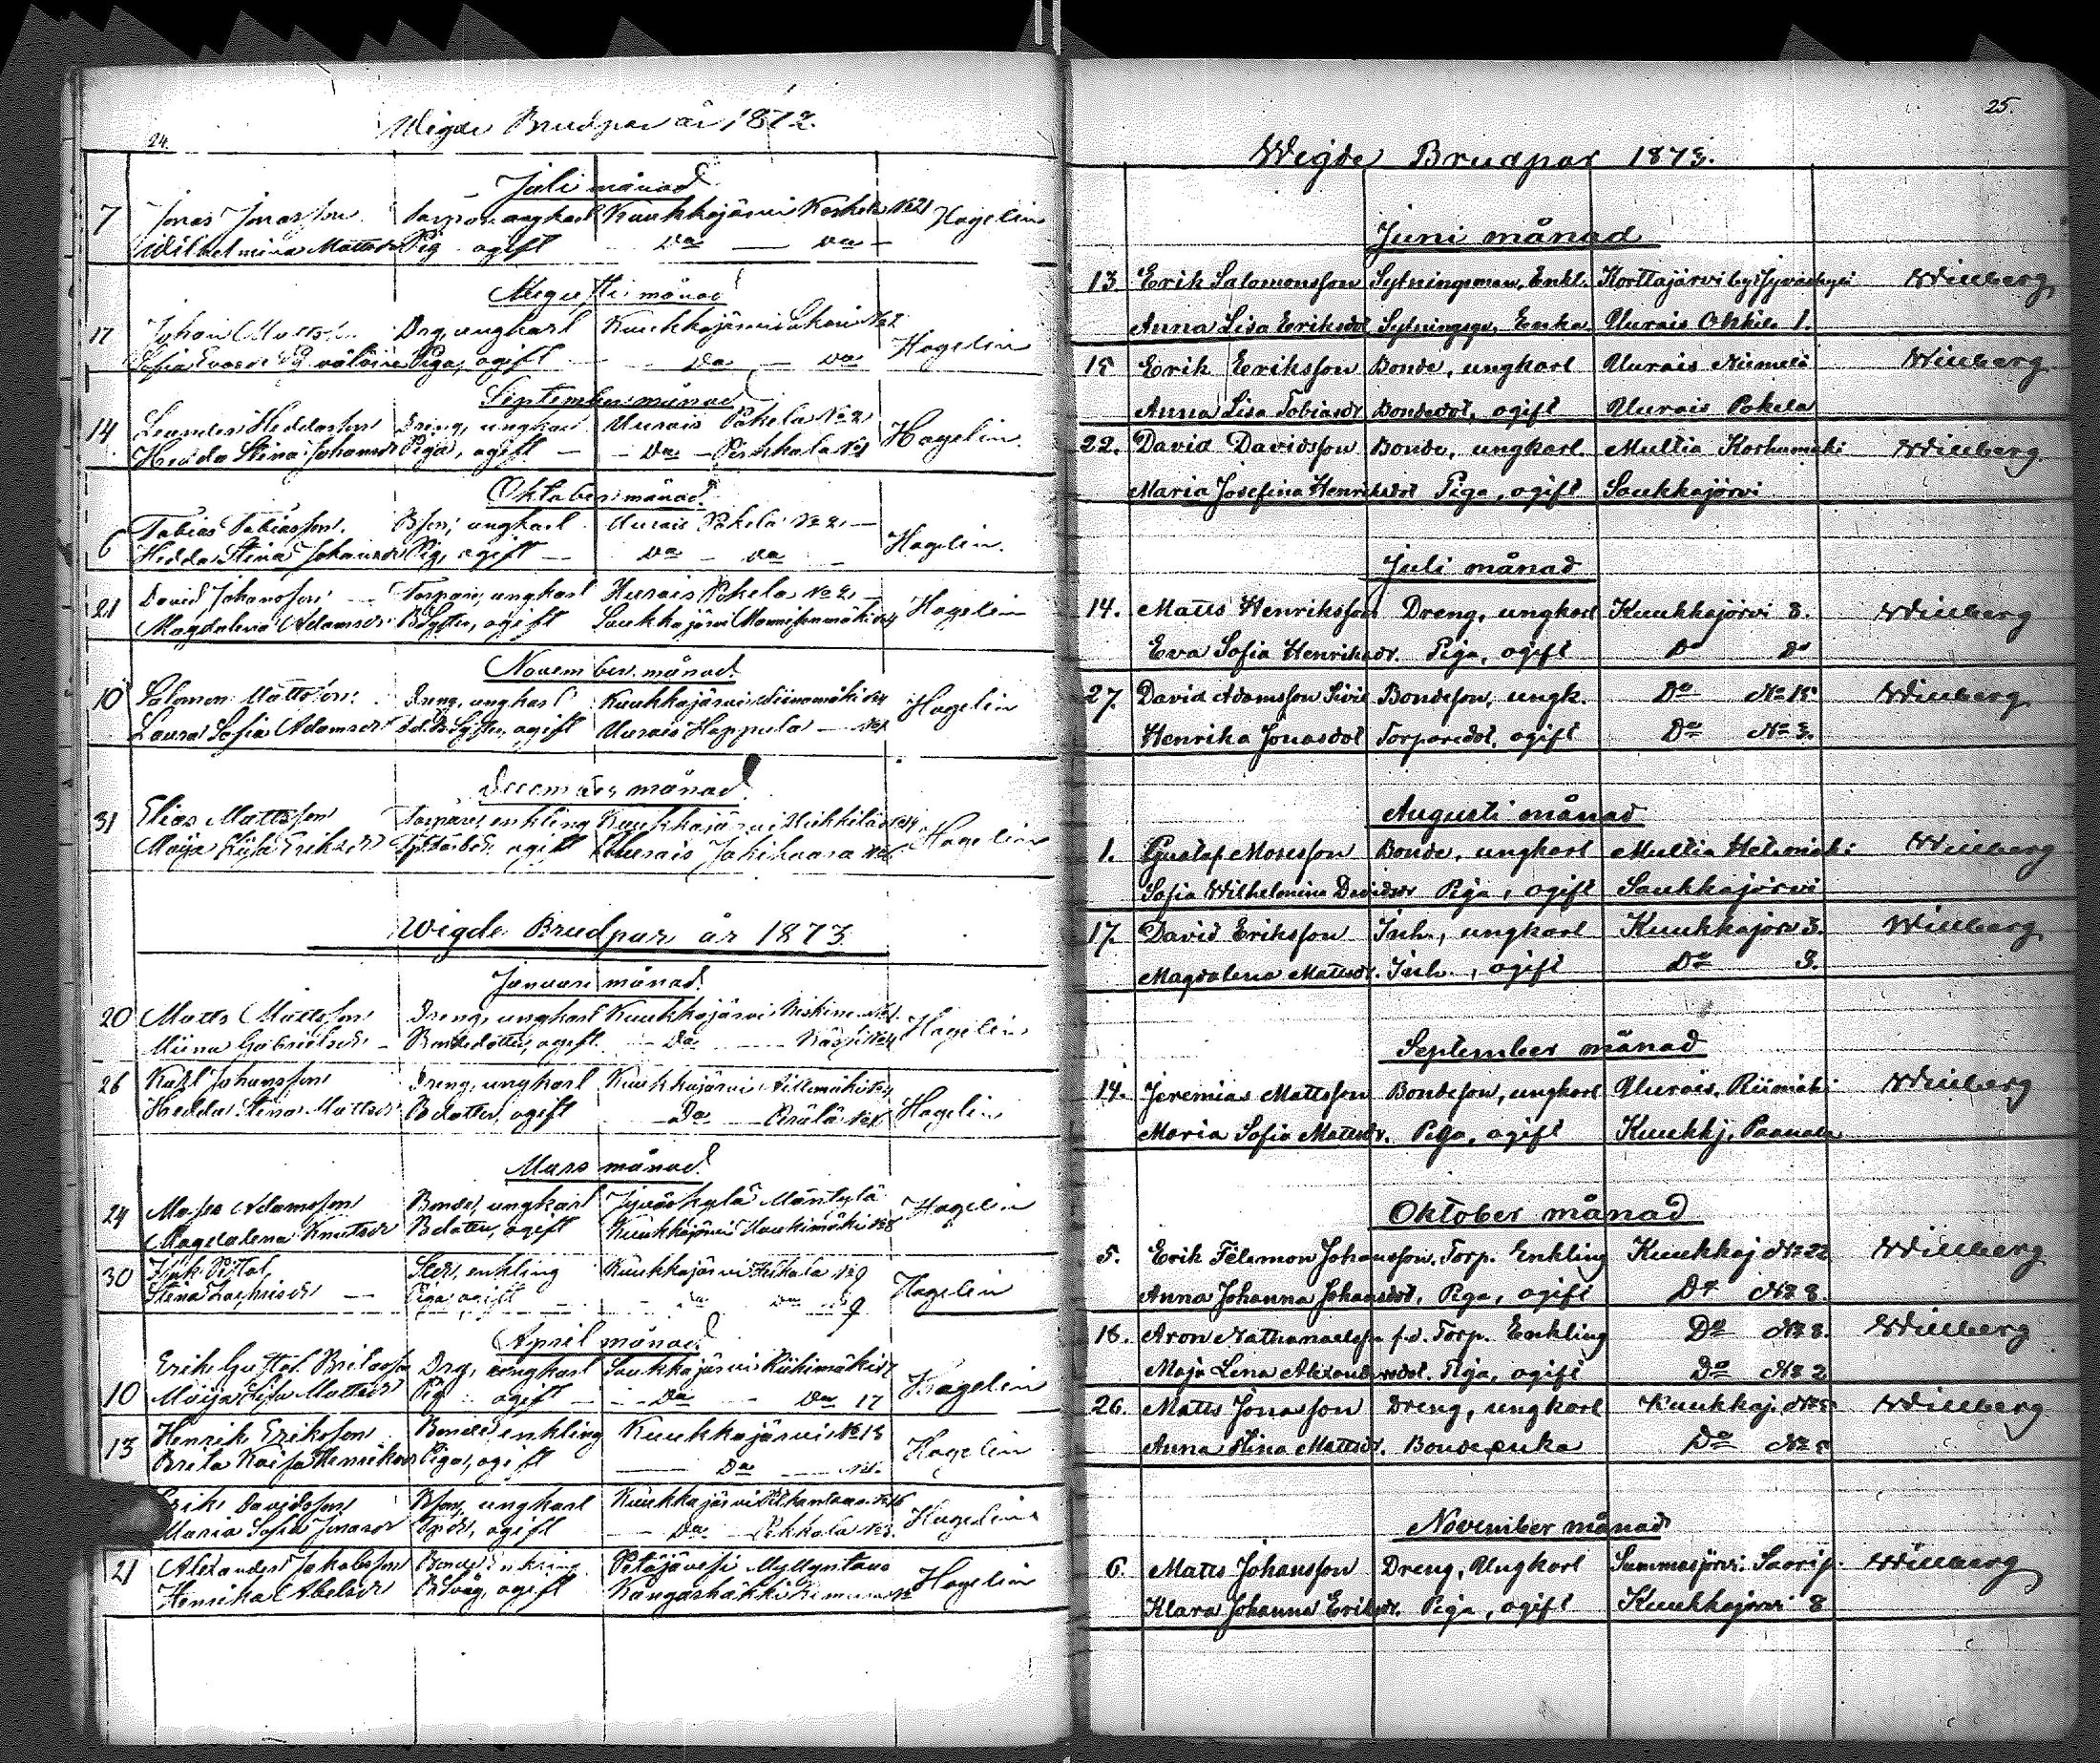 24.
Wigde Brudpar år 1872.
Juli månad
7 Jonas Jonasson Torpare ungkarl Kuukkajärvi Koskela No 21 Hagelin
Wilhelmina Mattsdr Pig ogift Do Do
Augusti månad
17 Johan Mattsson Drg, ungkarl Kuukkajärvi No 2 Hagelin
Sofia Evasdr Piga, ogift Do Do
September månad
14 Leander Heddasson Dreng, ungkarl Uurais Pokela No 2 Hagelin.
Hedda Stina Johansdr Piga, ogift Do
Oktober månad.
6 Tobias Tobiasson. Bson, ungkarl Uurais Pokela No 2 Hagelin.
Hedda Stina Johansdr Pig, ogift Do Do
21 David Johansson Torpare, ungkarl Uurais Pokela No 2 Hagelin
Magdalena Adamsdr ogift Saukkajärvi
November månad.
10 Salomon Mattsson. Dreng, ungkarl Kuukkajärvi Niinamäki Hagelin
Laura Sofia Adamsdr ogift Uurais Happula
December månad.
31 Elias Mattsson Torpare, enkling Kuukkajärvi Hagelin
Maija Eriksdr ogift Uurais Jokihaara
Wigde Brudpar år 1873
Januari månad.
20 Matts Mattsson Dreng, ungkarl Kuukkajärvi Hagelin
Miina Gabrielsdr Bondedotter, ogift Do
26 Karl Johansson Dreng, ungkarl Kuukkajärvi Hagelin
Hedda Stina Mattsdr Bdotter, ogift Do
Mars månad.
24 Moses Adamsson Bonde, ungkarl Jyväskylä Mäntylä Hagelin
Magdalena Knutsdr Bdotter, ogift Kuukkajärvi Haukimäki No 8
30 enkling Kuukkajärvi No 9 Hagelin
Stina Zachrisdr Piga ogift Do Do 9
April månad.
10 Erik Gustaf Drg, ungkarl Saukkajärvi Riihimäki 17 Hagelin
Maija Mattsdr Pig ogift Do Do 17
13 Henrik Eriksson Bonde enkling Kuukkajärvi No 13 Hagelin
Brita Kaisa Henriksdr Piga, ogift Do
Erik Davidsson Bson, ungkarl Kuukkajärvi Hagelin
Maria Sofia Jonasdr ogift Do Pekkala No 3.
21 Alexander Jakobsson Bonde Enkling Petäjävesi Hagelin
Henrika Abelsdr ogift Kangashäkki
25.
Wigde Brudpar 1873.
Juni månad
13 Erik Salomonsson Sytningsman, Enkl. Korttajärvi by i Jyväskylä Willberg
Anna Lisa Eriksdot Sytningsqv, Enka Uurais Okkila 1.
15 Erik Eriksson Bonde, ungkarl Uurais Niemelä Willberg
Anna Lisa Tobiasdr Bondedot, ogift Uurais Pokela
22. David Davidsson Bonde, ungkarl Multia Korhumäki Willberg.
Maria Josefina Henriksdot Piga, ogift Saukkajärvi
Juli månad
14. Matts Henriksson Dreng, ungkarl Kuukkajärvi 8. Willberg
Eva Sofia Henriksdr. Piga, ogift Do Do
27. David Adamsson Bondeson, ungk. Do No 15 Willberg
Henrika Jonasdot Torparedot, ogift Do No 3.
Augusti månad
1. Gustaf Mosesson Bonde, ungkarl Multia Willberg
Sofia Wilhelmina Davidsdr Piga, ogift Saukkajärvi
17. David Eriksson Inh., ungkarl Kuukkajärv 3. Willberg
Magdalena Mattsdr. Inh., ogift Do 3.
September månad
14. Jeremias Mattsson Bondeson, ungkarl Uurais, Riimäki Willberg
Maria Sofia Mattsdr. Piga, ogift Kuukkj. Paanala
Oktober månad
5. Erik Filemon Johansson, Torp. Enkling Kuukkaj No 22 Willberg
Anna Johanna Johansdot, Piga, ogift Do No 8.
16. Aron Nathanaelss f.d. Torp. Enkling Do No 8. Willberg
Maja Lena Alexandersdot. Piga, ogift Do No 2
26. Matts Jonasson Dreng, ungkarl Kuukkaj. No 5 Willberg
Anna Stina Mattsdr. Bondeenka Do No 5
November månad
6. Matts Johansson Dreng, Ungkarl Summasjärvi Saarij. Willberg
Klara Johanna Eriksdr. Piga, ogift Kuukkajärvi 8